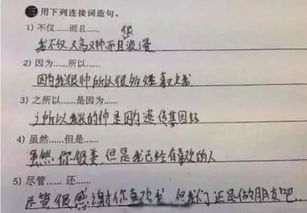 二 用下列连接词造句。
1) 不仅……而且……
我不仅又高又帅而且很浪漫
2) 因为……所以……
因为我很帅所以很多女生喜欢我
3) 之所以……是因为……
之所以我长的帅是因为遗传基因好
4) 虽然……但是……
虽然你很美但是我已经有喜欢的人
5) 尽管……还……
尽管很感谢你喜欢我 但我们还是做朋友吧